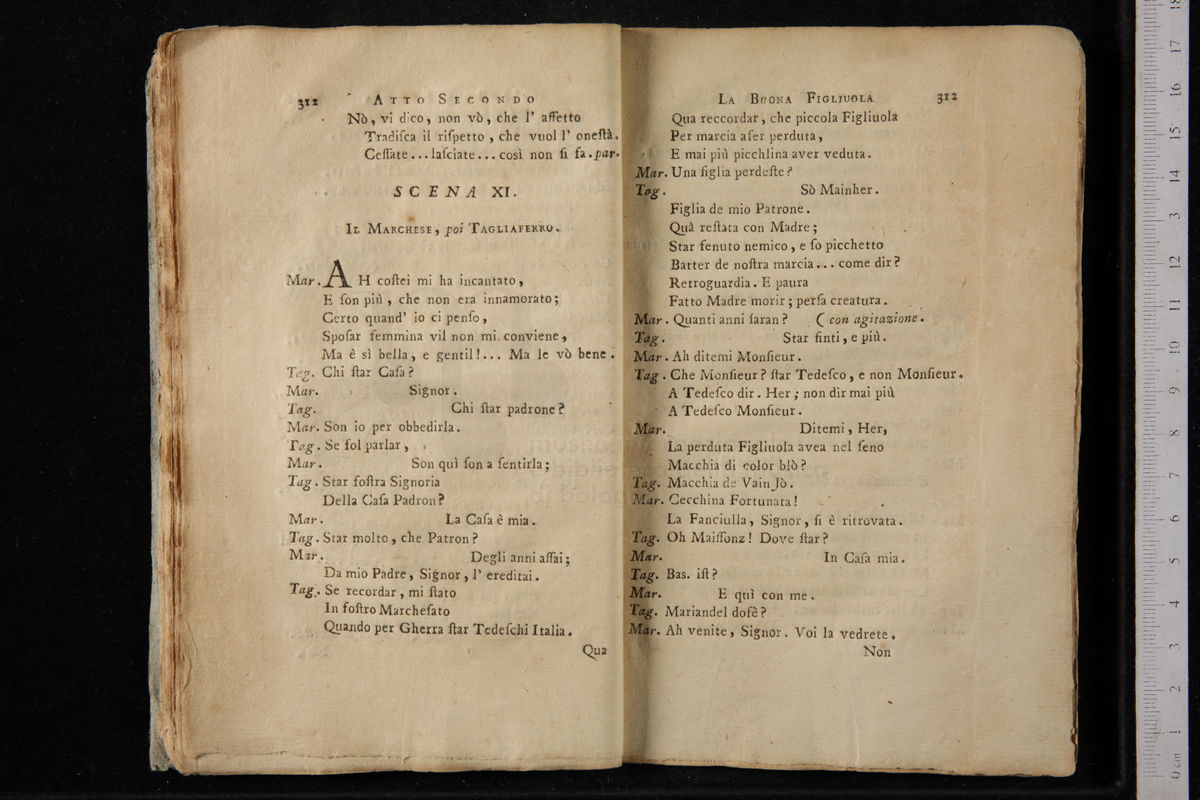 312 ATTO SECONDO
Nò, vi dico, non vò, che l' affetto
Tradiſca il riſpetto, che vuol l' oneſtà.
Ceſſate... laſciate... così non ſi fa. par.
SCENA XI.
IL MARCHESE, poi TAGLIAFERRO.
Mar. AH coſtei mi ha incantato,
E ſon più, che non era innamorato;
Certo quand' io ci penſo,
Spoſar femmina vil non mi conviene,
Ma è sì bella, e gentil!... Ma le vò bene.
Tag. Chi ſtar Caſa?
Mar. Signor.
Tag. Chi ſtar padrone?
Mar. Son io per obbedirla.
Tag. Se fol parlar,
Mar. Son quì ſon a ſentirla;
Tag. Star foſtra Signoria
Della Caſa Padron?
Mar. La Caſa è mia.
Tag. Star molto, che Patron?
Mar. Degli anni aſſai;
Da mio Padre, Signor, l' ereditai.
Tag. Se recordar, mi ſtato
In foſtro Marcheſato
Quando per Gherra ſtar Tedeſchi Italia.
Qua
LA BUONA FIGLIUOLA 312
Qua reccordar, che piccola Figliuola
Per marcia afer perduta,
E mai più picchlina aver veduta.
Mar. Una figlia perdeſte?
Tag. Sò Mainher.
Figlia de mio Patrone.
Quà reſtata con Madre;
Star fenuto nemico, e ſo picchetto
Batter de noſtra marcia... come dir?
Retroguardia. E paura
Fatto Madre morir; perſa creatura.
Mar. Quanti anni ſaran? ( con agitazione.
Tag. Star finti, e più.
Mar. Ah ditemi Monſieur.
Tag. Che Monſieur? ſtar Tedeſco, e non Monſieur.
A Tedeſco dir. Her; non dir mai più
A Tedeſco Monſieur.
Mar. Ditemi, Her,
La perduta Figliuola avea nel ſeno
Macchia di color blò?
Tag. Macchia de Vain Jò.
Mar. Cecchina Fortunata!
La Fanciulla, Signor, ſi è ritrovata.
Tag. Oh Maiſſonz! Dove ſtar?
Mar. In Caſa mia.
Tag. Bas. iſt?
Mar. E quì con me.
Tag. Mariandel dofè?
Mar. Ah venite, Signor. Voi la vedrete.
Non
0 cm 1 2 3 4 5 6 7 8 9 10 11 12 13 14 15 16 17 18